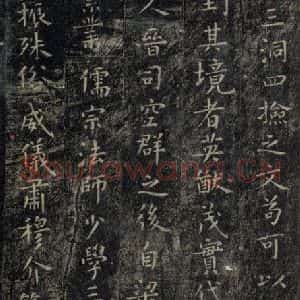 三洞四撿之文可以
到其境者英猷茂實代
人晉司空群之後自梁
業儒宗法師少學三
振殊俗威儀肅穆介
Shufawang.CN